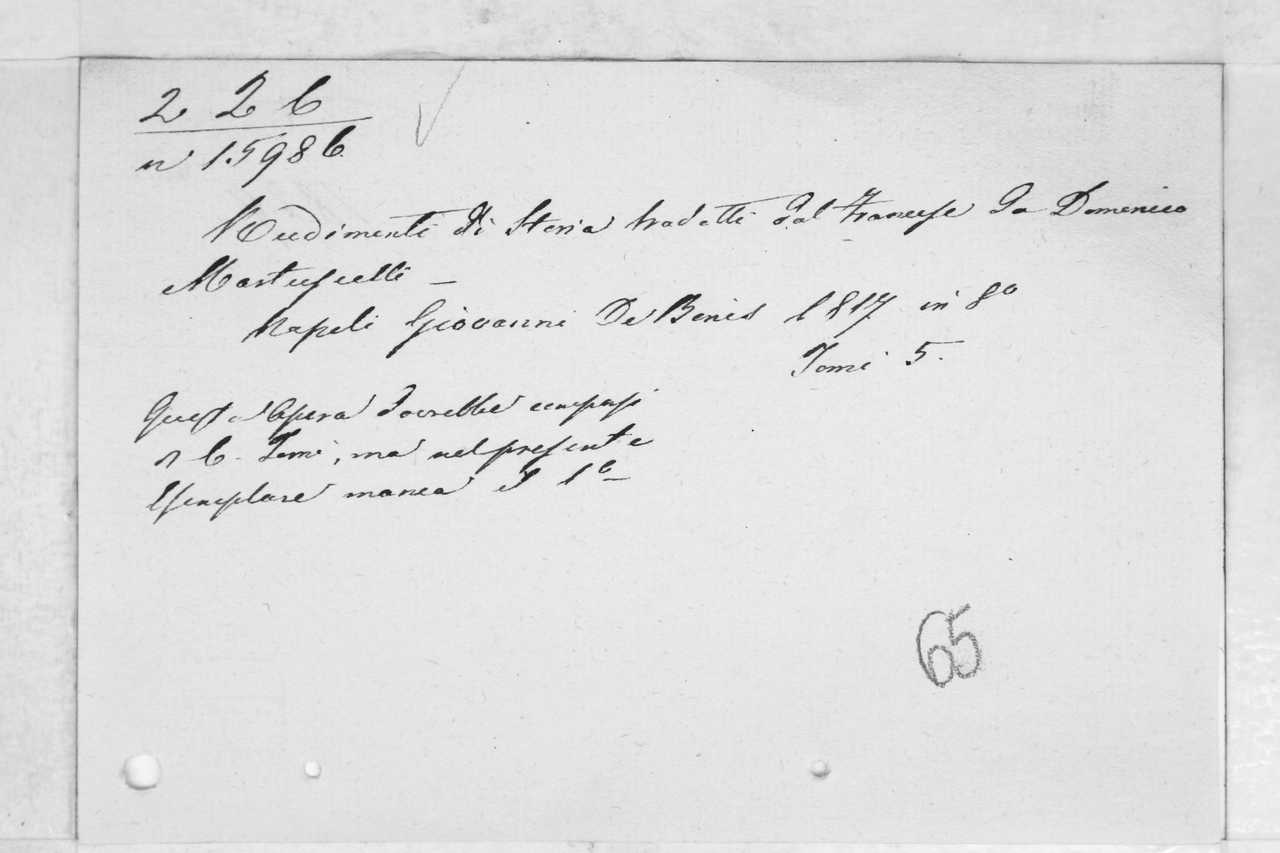 2 2 6
n 15986
Rudimenti di Storia tradotti dal Francese da Domenico
Martuscelli —
Napoli Giovanni De Bonis 1817 in 8º
Tomi 5.
Quest'Opera dovrebbe
6. Tomi, ma nel presente
Esemplare manca il 1º —
65